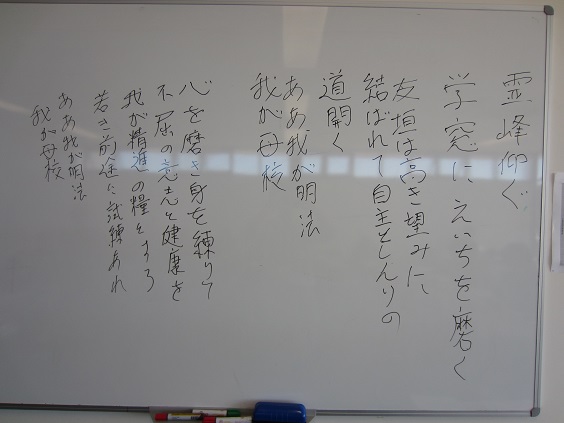 霊峰仰ぐ
学窓にえいちを磨く
友垣は高き望みに、
結ばれて自主としんりの
道開く
ああ我が明法
我が母校
心を磨き身を練りて
不屈の意志と健康を
我が精進の糧とする
若き前途に試練あれ
ああ我が明法
我が母校